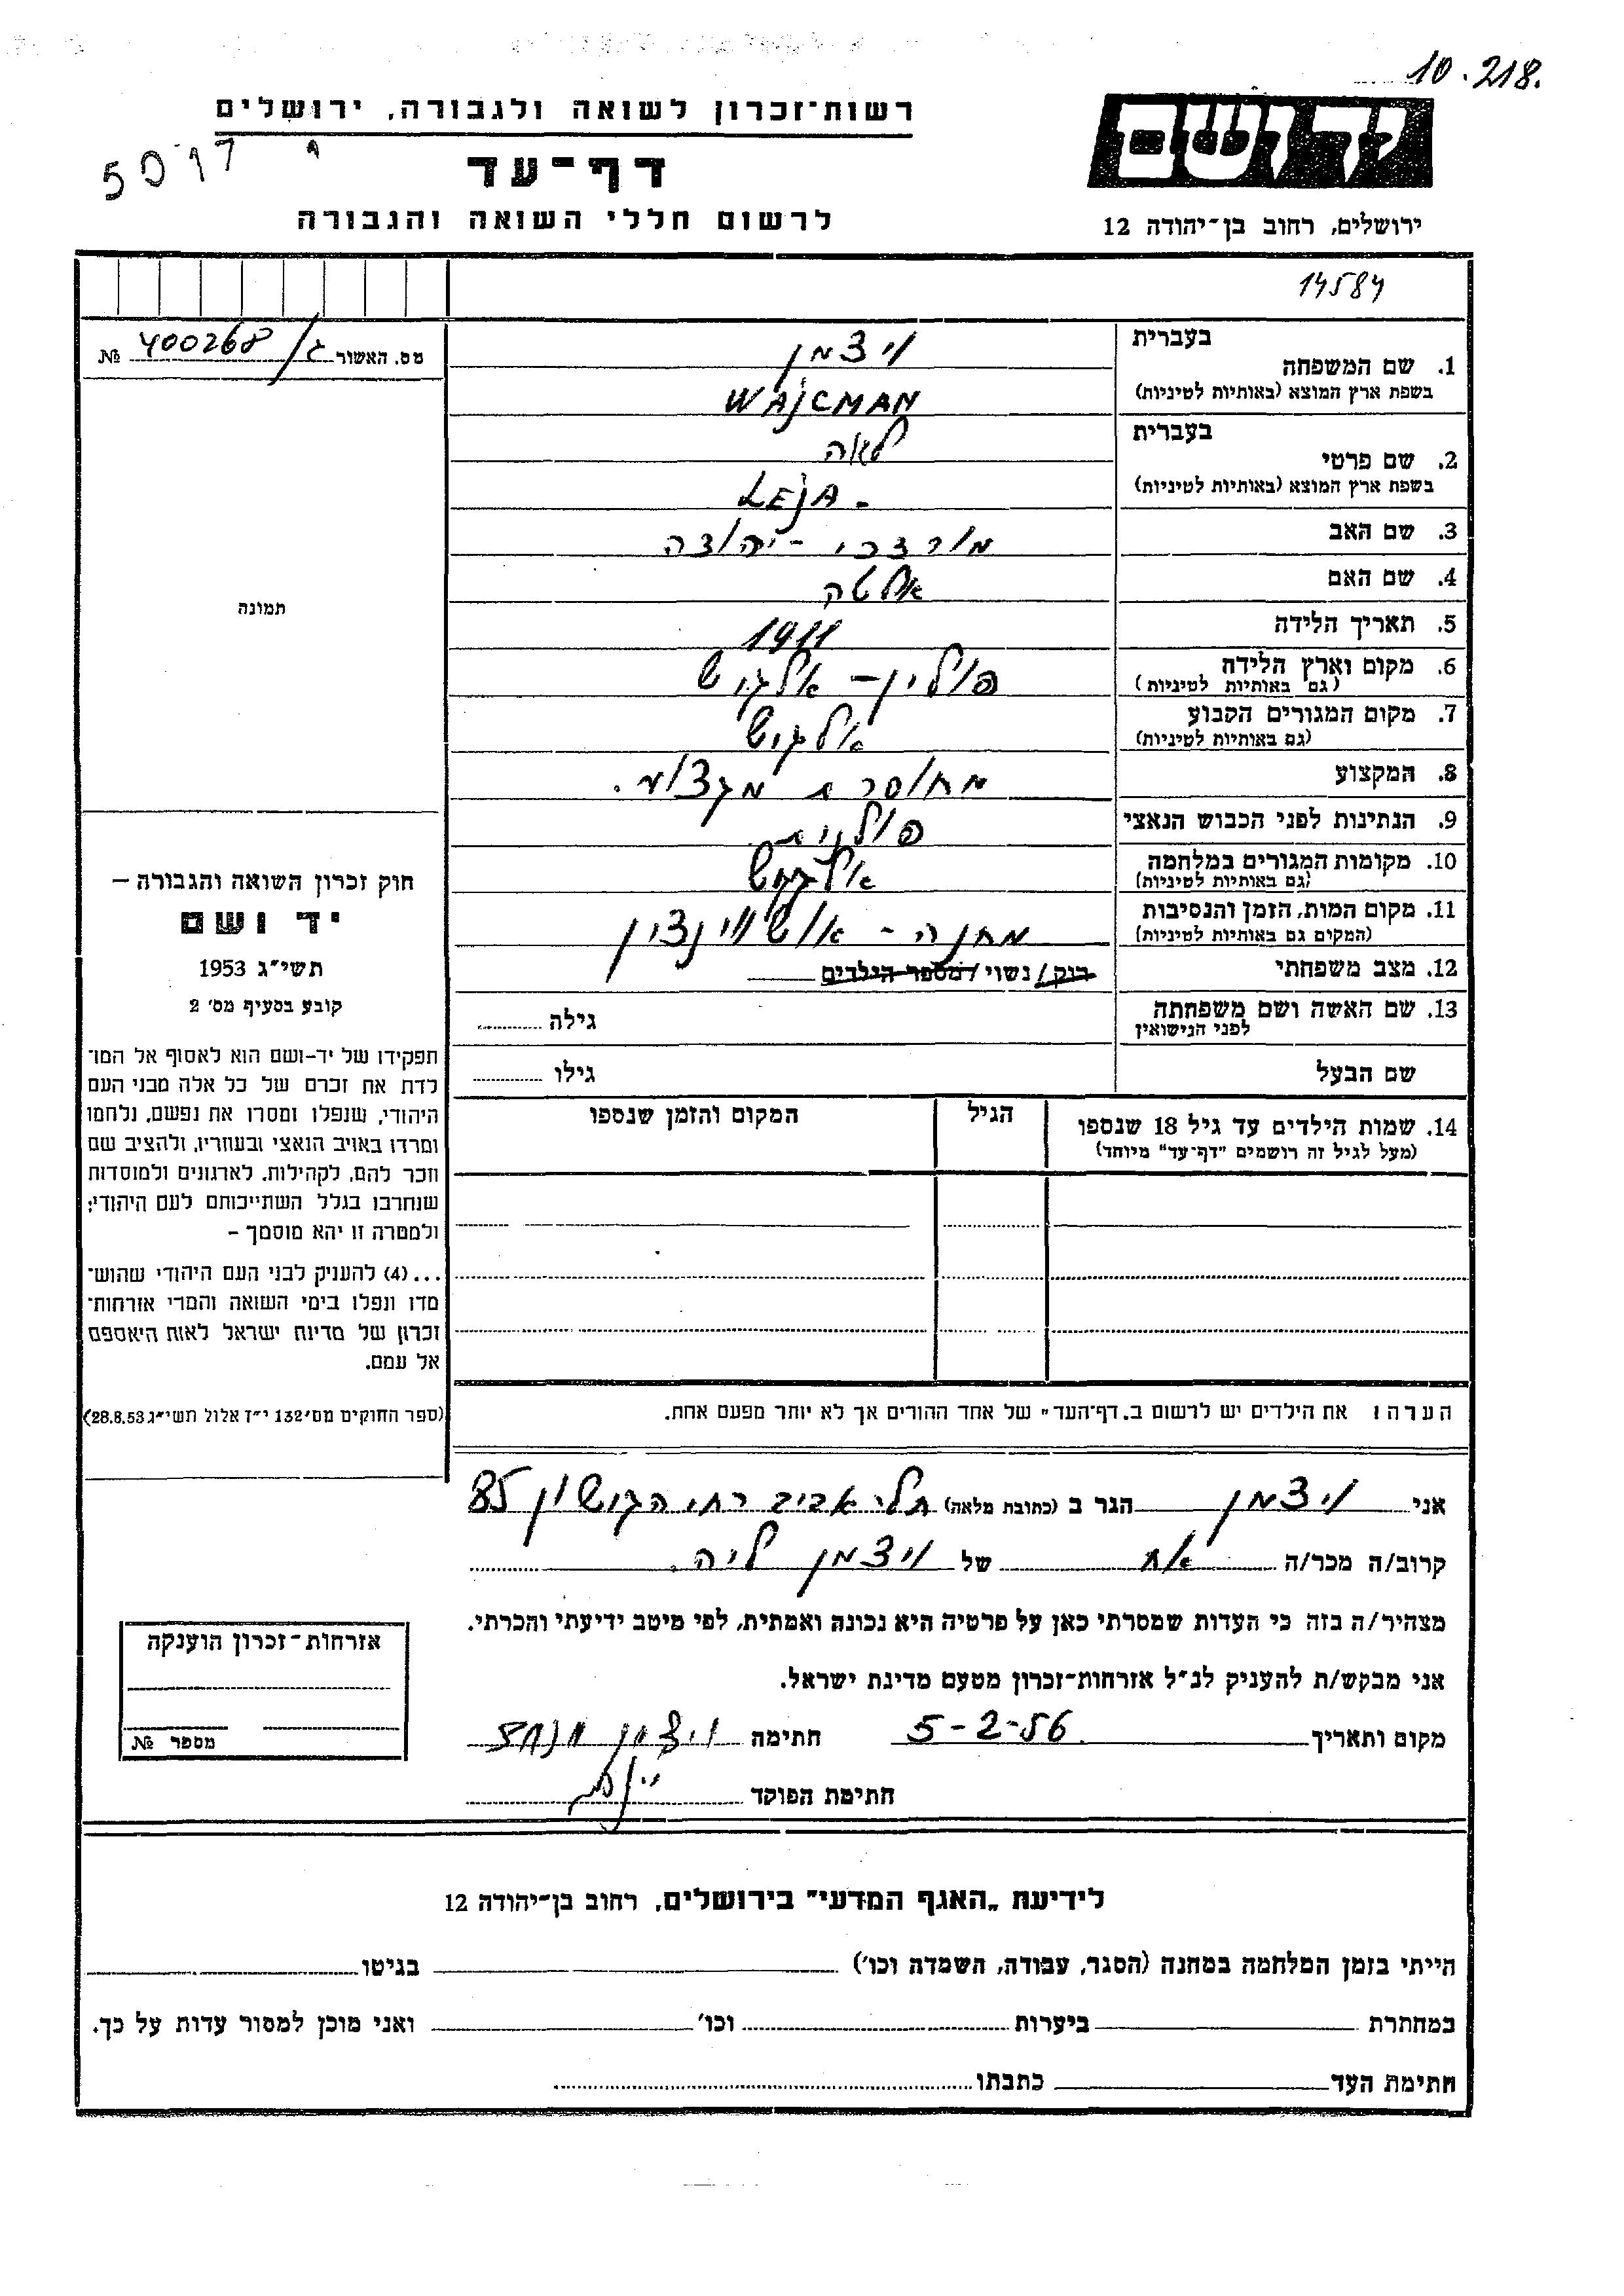 10.218.
ידושם
רשות־זכרון לשואה ולגבורה, ירושלים
דף־עד
לרשום חללי השואה והגבורה
ירושלים, רחוב בן־יהודה 12
14584
מס. האשור ג/ 400268 №
בעברית
1. שם המשפחה ויצמן
בשפת ארץ המוצא (באותיות לטיניות) WAJCMAN
בעברית
2. שם פרטי לאה
בשפת ארץ המוצא (באותיות לטיניות) LEJA -
3. שם האב מורדכי - יהודה
4. שם האם אלטה
5. תאריך הלידה 1911
6. מקום וארץ הלידה פולין - אלקוש
(גם באותיות לטיניות)
7. מקום המגורים הקבוע אלקוש
(גם באותיות לטיניות)
8. המקצוע מחוסרת מקצוע.
9. הנתינות לפני הכבוש הנאצי פולנית
10. מקומות המגורים במלחמה אלקוש
(גם באותיות לטיניות)
11. מקום המות, הזמן והנסיבות מחנה - אושווינצין
(המקום גם באותיות לטיניות)
12. מצב משפחתי רוק/ נשוי /מספר הילדים
13. שם האשה ושם משפחתה לפני הנישואין גילה
שם הבעל גילו
14. שמות הילדים עד גיל 18 שנספו הגיל המקום והזמן שנספו
(מעל לגיל זה רושמים "דף־עד" מיוחד)
הערה: את הילדים יש לרשום ב„דף־העד" של אחד ההורים אך לא יותר מפעם אחת.
תמונה
חוק זכרון השואה והגבורה –
יד ושם
תשי"ג 1953
קובע בסעיף מס' 2
תפקידו של יד-ושם הוא לאסוף אל המו־
לדת את זכרם של כל אלה מבני העם
היהודי, שנפלו ומסרו את נפשם, נלחמו
ומרדו באויב הנאצי ובעוזריו, ולהציב שם
וזכר להם, לקהילות, לארגונים ולמוסדות
שנחרבו בגלל השתייכותם לעם היהודי;
ולמטרה זו יהא מוסמך –
...(4) להעניק לבני העם היהודי שהוש־
מדו ונפלו בימי השואה והמרי אזרחות־
זכרון של מדינת ישראל לאות היאספם
אל עמם.
(ספר החוקים מס' 132 י"ז אלול תשי"ג 28.8.53)
אני ויצמן הגר ב (כתובת מלאה) תל אביב רח' הקישון 85
קרוב/ה מכר/ה אח של ויצמן ליה.
מצהיר/ה בזה כי העדות שמסרתי כאן על פרטיה היא נכונה ואמתית, לפי מיטב ידיעתי והכרתי.
אני מבקש/ת להעניק לנ"ל אזרחות־זכרון מטעם מדינת ישראל.
מקום ותאריך 5-2-56 חתימה ויצמן
חתימת הפוקד
אזרחות־זכרון הוענקה
מספר №
לידיעת „האגף המדעי" בירושלים, רחוב בן־יהודה 12
הייתי בזמן המלחמה במחנה (הסגר, עבודה, השמדה וכו') בגיטו
במחתרת ביערות וכו' ואני מוכן למסור עדות על כך.
חתימת העד כתבתו